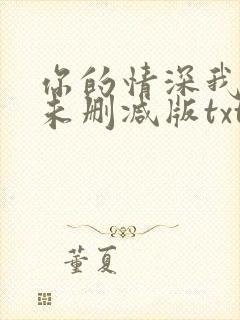 你的情深我
未删减版txt
董夏